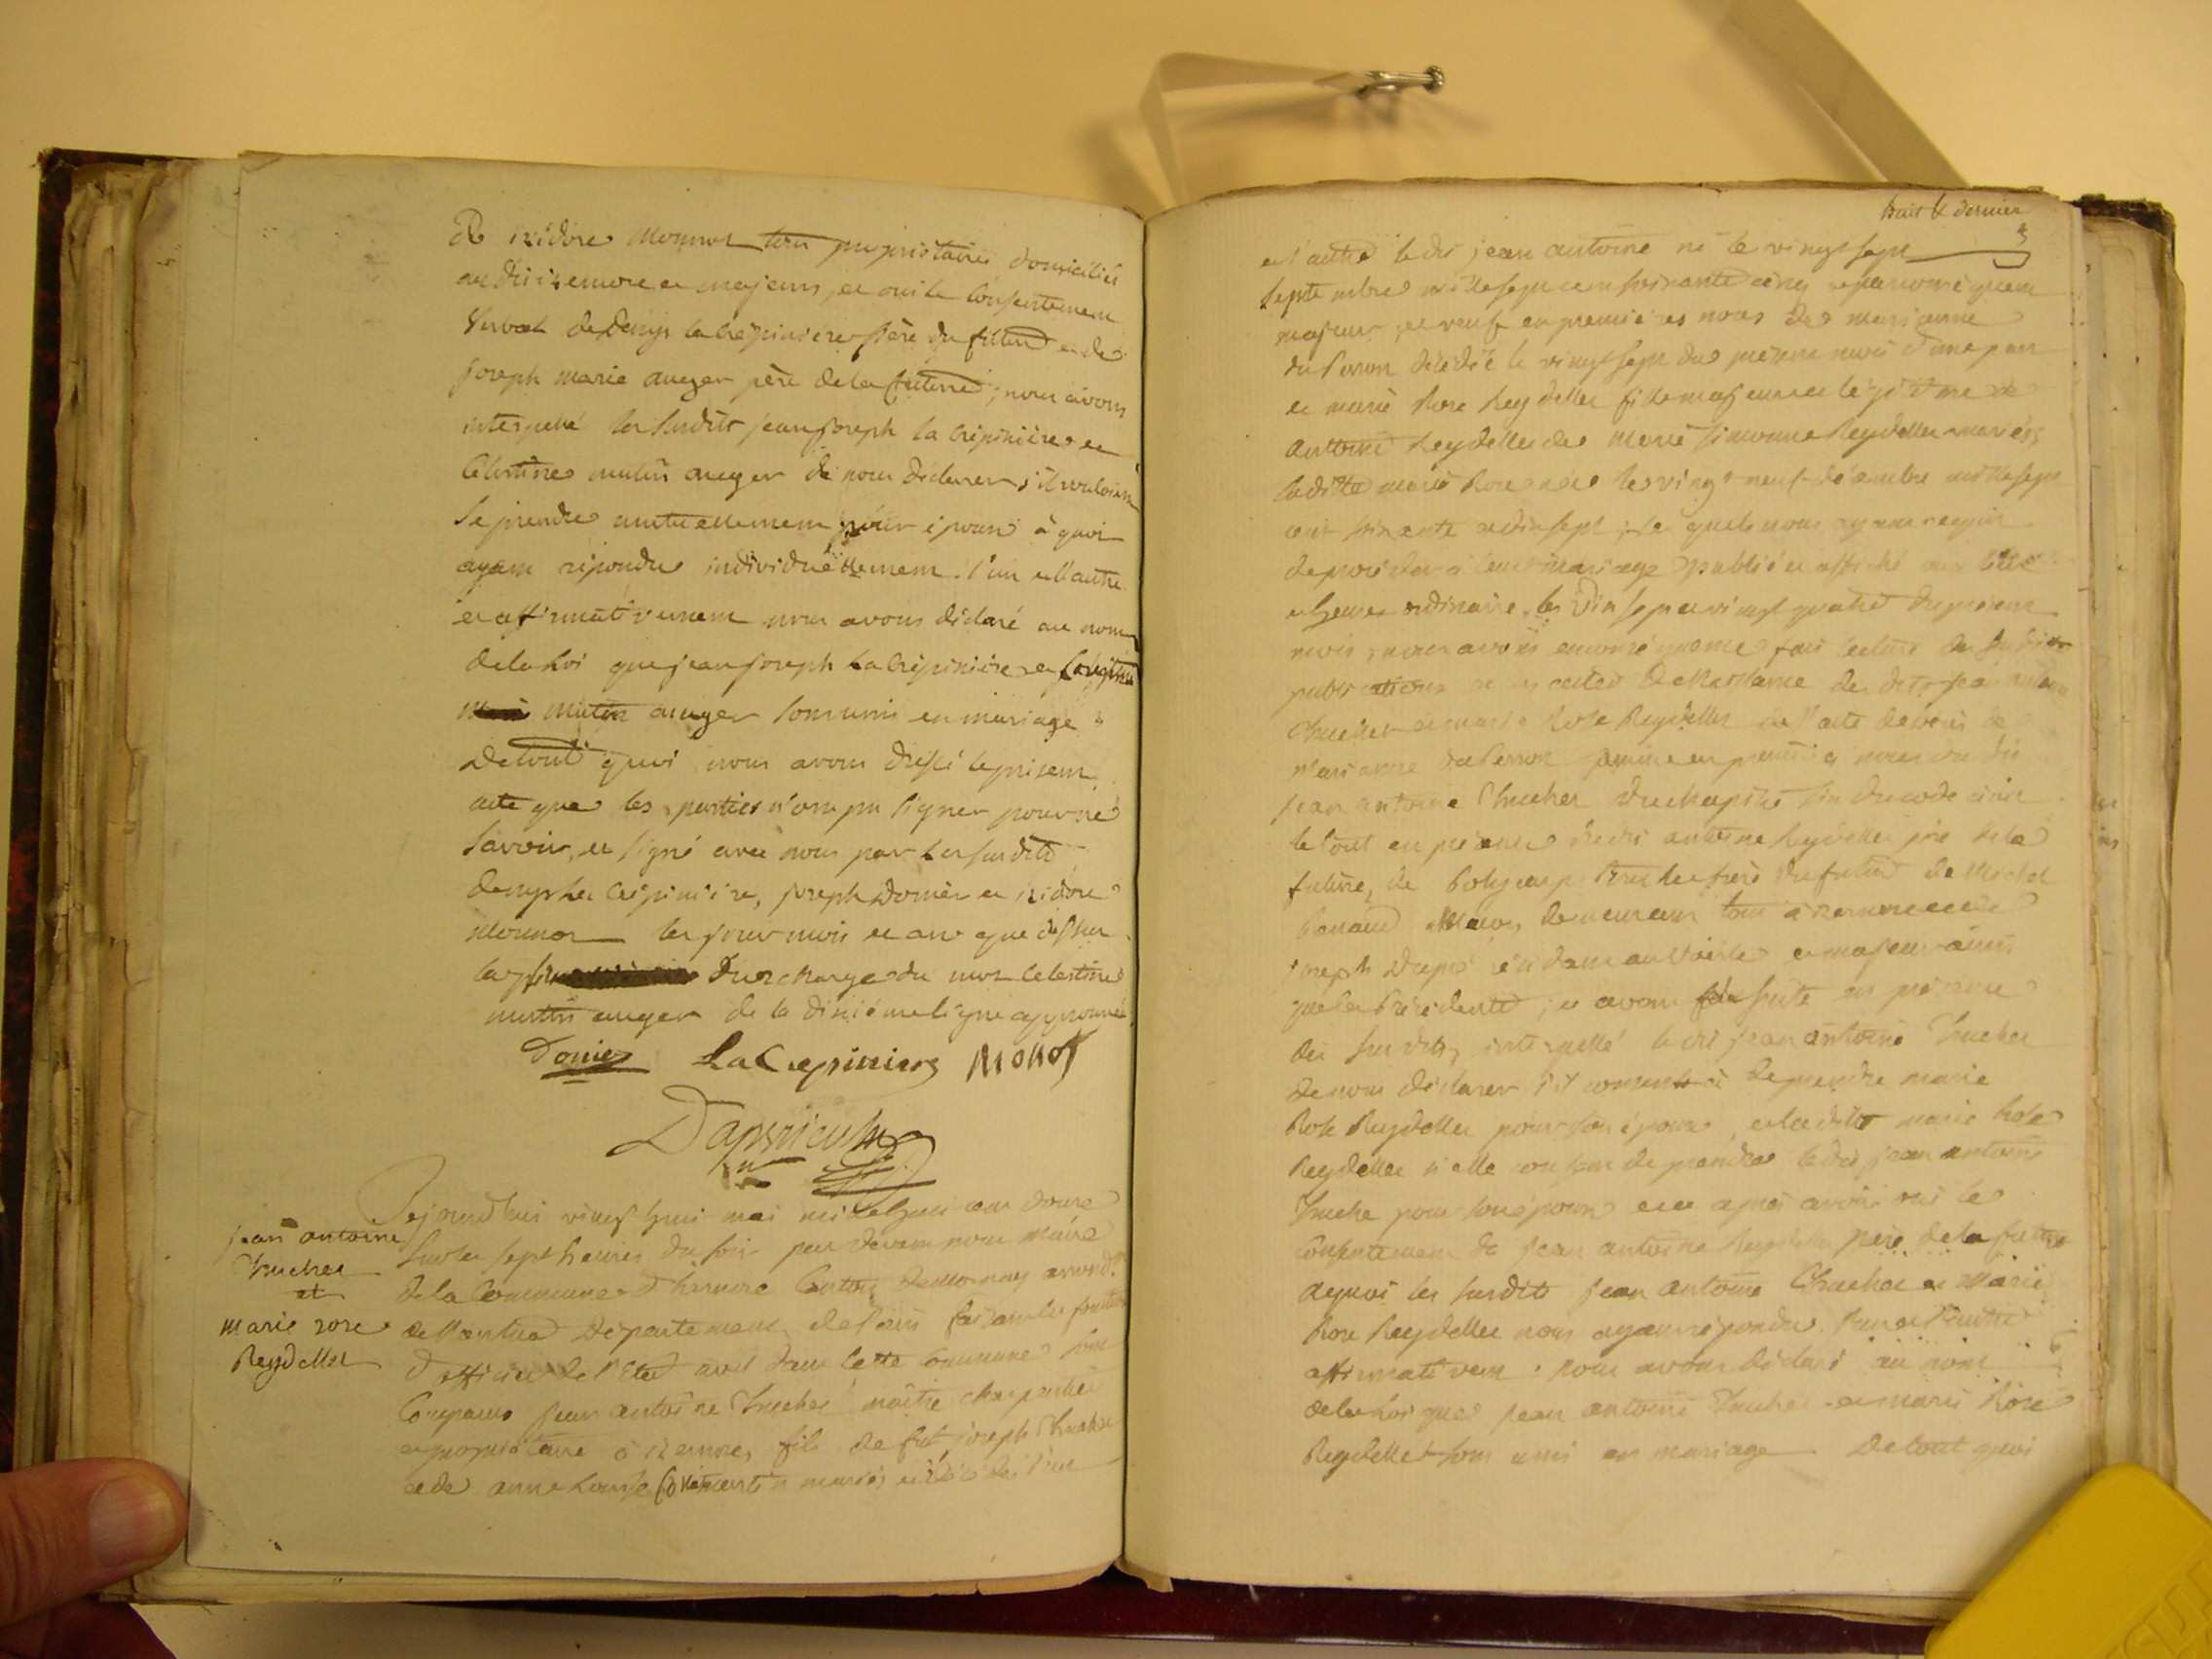 De isidore Monnot tous propriétaires domiciliés
audit izernore et majeurs, et oui le consentement
verbal de denys lacrépiniere père du futur et de
joseph marie auger père de la future, nous avons
interpellé les susdits jean joseph la crépinière et
célestine mutin auger de nous déclarer s'ils vouloient
se prendre mutuellement pour époux à quoi
ayant répondu individuellement l'un et l'autre
et affirmativement nous avons déclaré au nom
de la Loi que jean joseph la crépinière et Célestine
mutin auger sont unis en mariage
De tout quoi nous avons dressé le présent
acte que les parties n'ont pu signer pour ne
savoir, et signé avec nous par les susdits
denys la crépinière, joseph Domier et isidore
Monnot les jour mois et an que dessus
la surcharge du mot Celestine
mutin auger de la dixième ligne approuvé
Domier LaCrepiniere Monot
jean antoine
Truchet
et
marie rose
Reydellet
Cejourd'hui vingt huit mai mil huit cent douze
sur les sept heures du soir par devant nous maire
de la Commune d'Izernore Canton arrond.t
de Nantua Département de l'ain faisant les fonctions
d'officier de l'Etat civil dans cette Commune sont
Comparus jean antoine Truchet maître charpentier
et propriétaire à izernore, fils de fut joseph Truchet
et de anne Louise mariés l'un
huit & dernier
et l'autre ledit jean antoine né le vingt sept
septembre mil sept cent soixante cinq
majeur, et veuf en premières noces de marianne
du Perron décédée le vingt sept du d'une part
et marie Rose Reydellet fille majeure et légitime de
Antoine Reydellet et de Marie Simonne Reydellet mariés
ladite marie Rose née le vingt neuf décembre mil sept
cent soixante et dix sept ; lesquels nous ayant requis
de procéder à leur mariage publié et affiché aux lieu
et heures ordinaires les dix sept et vingt quatre du présent
mois, nous avons fait lecture des susdites
publications de naissance des dits jean antoine
Truchet et marie Rose Reydellet de l'acte de décès de
Marianne du Perron femme en premières noces du dit
jean antoine Truchet du chapitre six du code civil
le tout en présence dudit antoine Reydellet père de la
future, de Truchet frère du futur de Michel
demeurant tous à izernore et de
joseph et majeurs ainsi
que les précédents ; et avons de suite en présence
des susdits, interpellé ledit jean antoine Truchet
de nous déclarer s'il consent à de prendre marie
Rose Reydellet pour son épouse, et ladite marie Rose
Reydellet si elle consent de prendre ledit jean antoine
Truchet pour son époux et après avoir oui le
consentement de jean antoine Reydellet père de la future
à quoi les susdits jean antoine Truchet et Marie
Rose Reydellet nous ayant répondu l'un et l'autre
affirmativement nous avons déclaré au nom
de la Loi que jean antoine Truchet et marie Rose
Reydellet sont unis en mariage De tout quoi